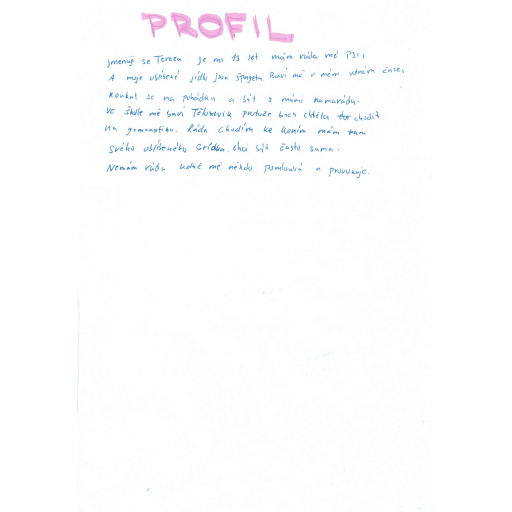 PROFIL
jmenuji se Tereza je mi 13 let mám ráda mé psi,
A moje oblíbené jídlo jsou špagety. Baví mě v mém volném čase,
Koukat se na pohádku a být s mými kamarády.
Ve škole mě baví Tělocvik protože bych chtěla chodit
na gymnastiku. Ráda chodím ke koním mám tam
Svého oblíbeného chci být často sama.
Nemám ráda když mě někdo pomlouvá a provokuje.